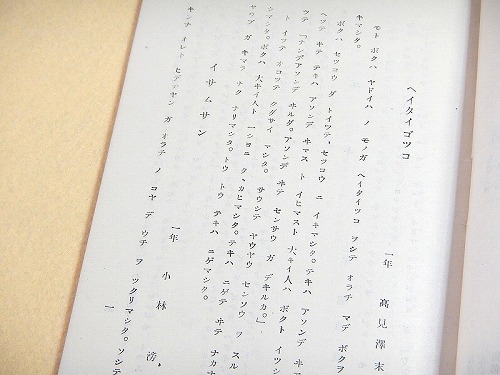 ヘイタイゴツコ
一年 高見澤末
モト ボクハ ヤドイハ ノ モノガ ヘイタイゴツコ ヲシテ オラテ マデ ボクヲ
キマシタ。
ボクハ セツコウ ダ トイワテ、セツコウ ニ イキマシタ。テキハ アソンデ ヰ
ヘツテ キテ テキハ アソンデ ヰマス ト イヒマスト 大キイ人ハ ボクト イツシ
ツテ 「ナンデアソンデ ヰルダ。アソンデ ヰテ センサウ ガ デキルカ。」
ト イツテ オコツテ クグサイ マシタ。サウシテ ヤウヤウ センソウ ヲ スル
シマシタ。ボクハ 大キイ人ト 一シヨニ ク、カヒマシタ。テキハ ニゲテ ヰテ ナカナ
ガ キマ ナク ナリマシタ。トウ トウ テキハ ニゲマシタ。
イサムサン
一年 小林 滂
キンナ オレト ヒデチヤン ガ オラチ ノ コヤ デ ウチ ヲ ツクリマシタ。ソシテ
一